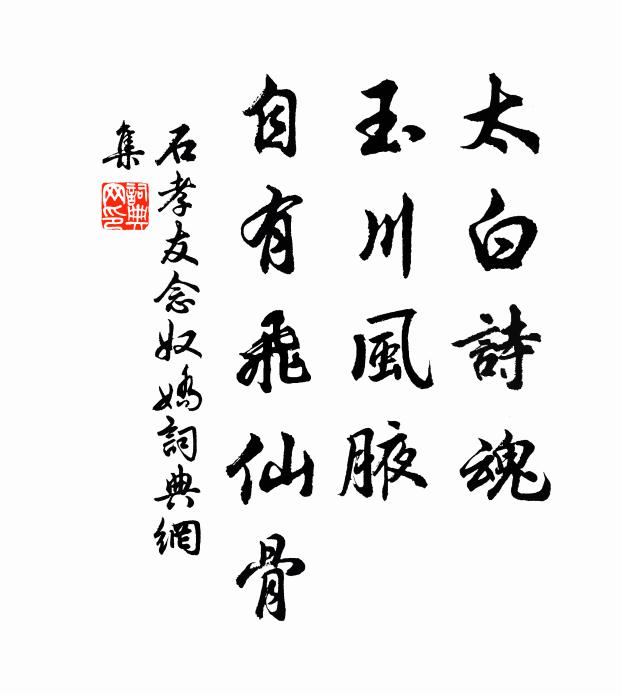 太白詩魂
玉川風腋
自有飛仙骨
石孝友念奴嬌詞典網
集
詞典
网印